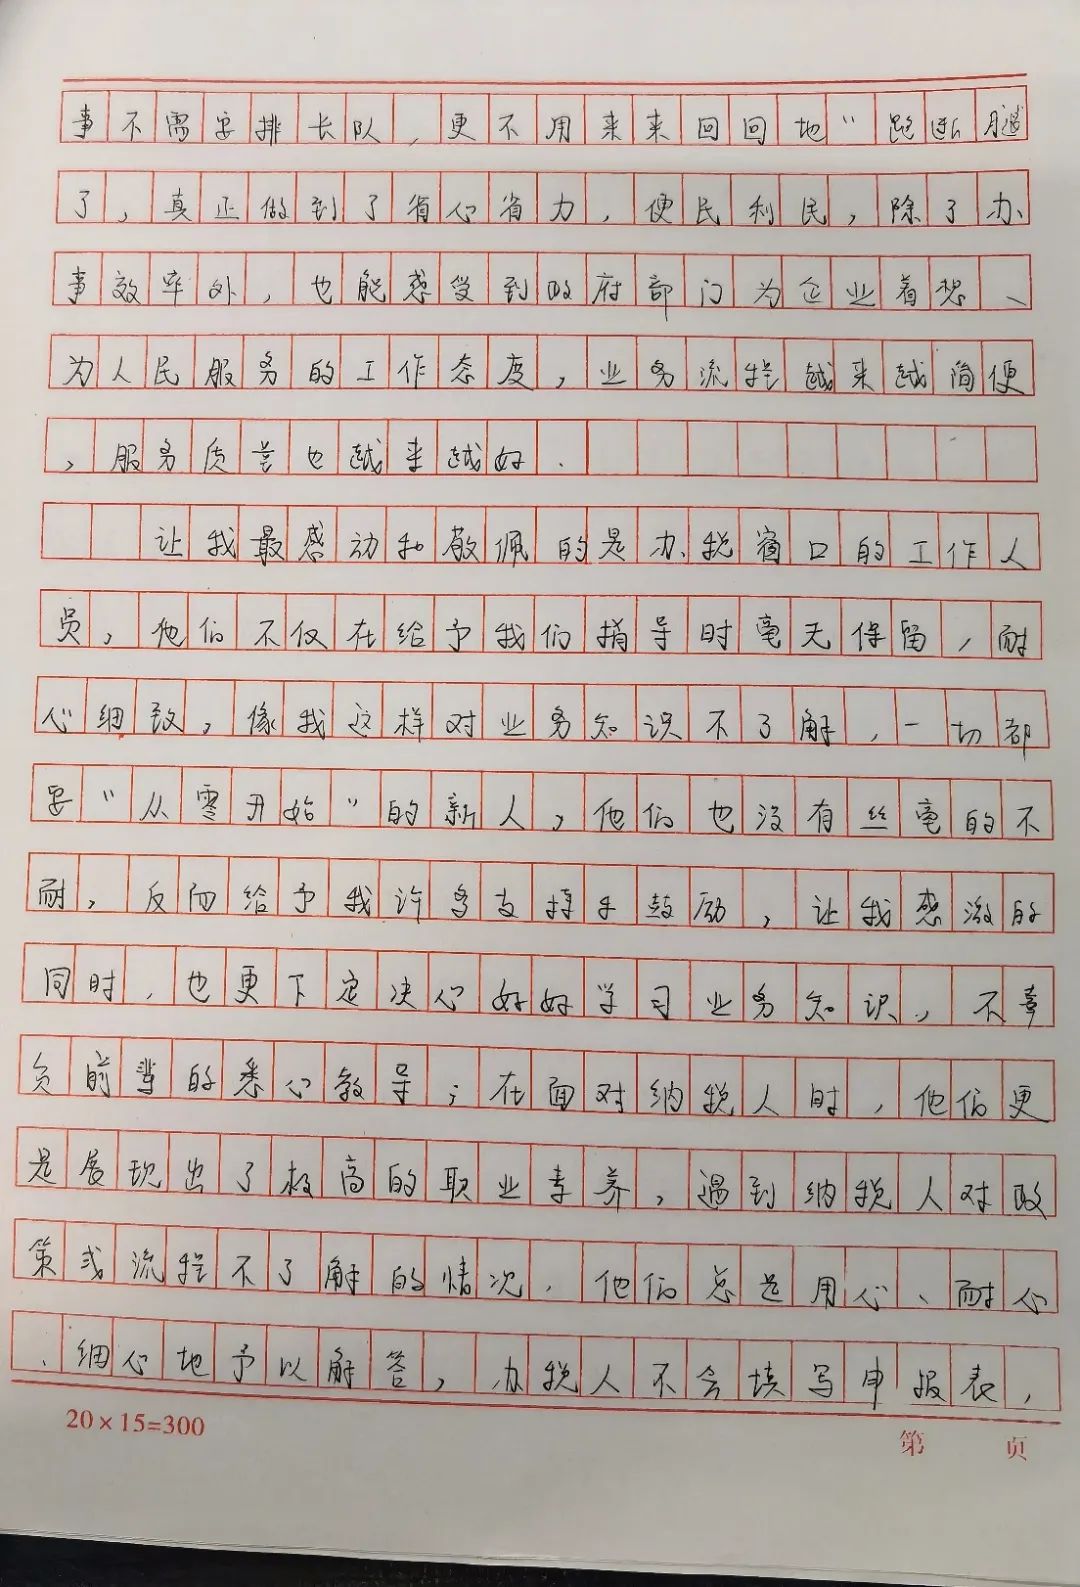 事不需要排长队，更不用来来回回地“跑断腿
了，真正做到了省心省力，便民利民，除了办
事效率外，也能感受到政府部门为企业着想、
为人民服务的工作态度，业务流程越来越简便
，服务质量也越来越好．
让我最感动和敬佩的是办税窗口的工作人
员，他们不仅在给予我们指导时毫无保留，耐
心细致，像我这样对业务知识不了解，一切都
要“从零开始”的新人，他们也没有丝毫的不
耐，反而给予我许多支持和鼓励，让我感激的
同时，也更下定决心好好学习业务知识，不辜
负前辈的悉心教导；在面对纳税人时，他们更
是展现出了极高的职业素养，遇到纳税人对政
策或流程不了解的情况．他们总是用心、耐心
、细心地予以解答，办税人不会填写申报表，
20×15=300
第 页